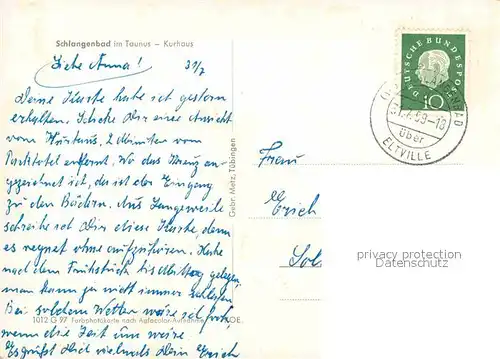 Schlangenbad im Taunus – Kurhaus
Liebe Anna! 31/7
Deine Karte habe ich gestern
erhalten. Schicke Dir eine Ansicht
vom Kurhaus, 2 Minuten vom
Parkhotel entfernt. Wo das Kreuz an-
gezeichnet ist, da ist der Eingang
zu den Bädern. Aus Langerweile
schreibe ich Dir diese Karte, denn
es regnet ohne aufzuhören. Habe
nach dem Frühstück bis Mittag gelegen,
man kann ja nicht immer schlafen
Bei solchem Wetter wäre ich froh
wenn die Zeit um wäre
Es grüßt Dich vielmals Dein Erich
1012 G 97 Farbphotokarte nach Agfacolor-Aufnahme
Gebr. Metz, Tübingen
DEUTSCHE BUNDESPOST
10
31.7.59-18
über
ELTVILLE
Frau
Erich
privacy protection
Datenschutz